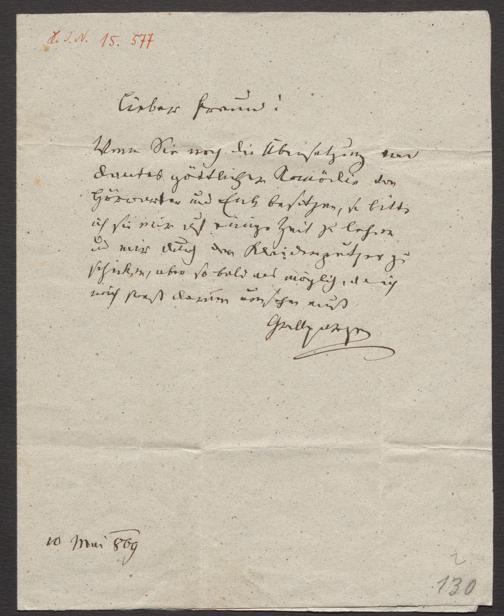 H.I.N. 15.577
Lieber Freund!
Wenn Sie noch die Übersetzung von
Dantes göttlicher Komödie von
Hörwarter und Enk besitzen, so bitte
ich sie mir auf einige Zeit zu leihen
und mir durch den Kleiderputzer zu
schicken, aber so bald als möglich, da ich
mich sonst darum umsehen muß
Grillparzer
10 Mai 869
2
130